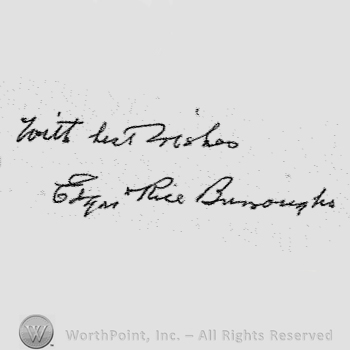 With best wishes
Edgar Rice Burroughs
W
WorthPoint, Inc. – All Rights Reserved